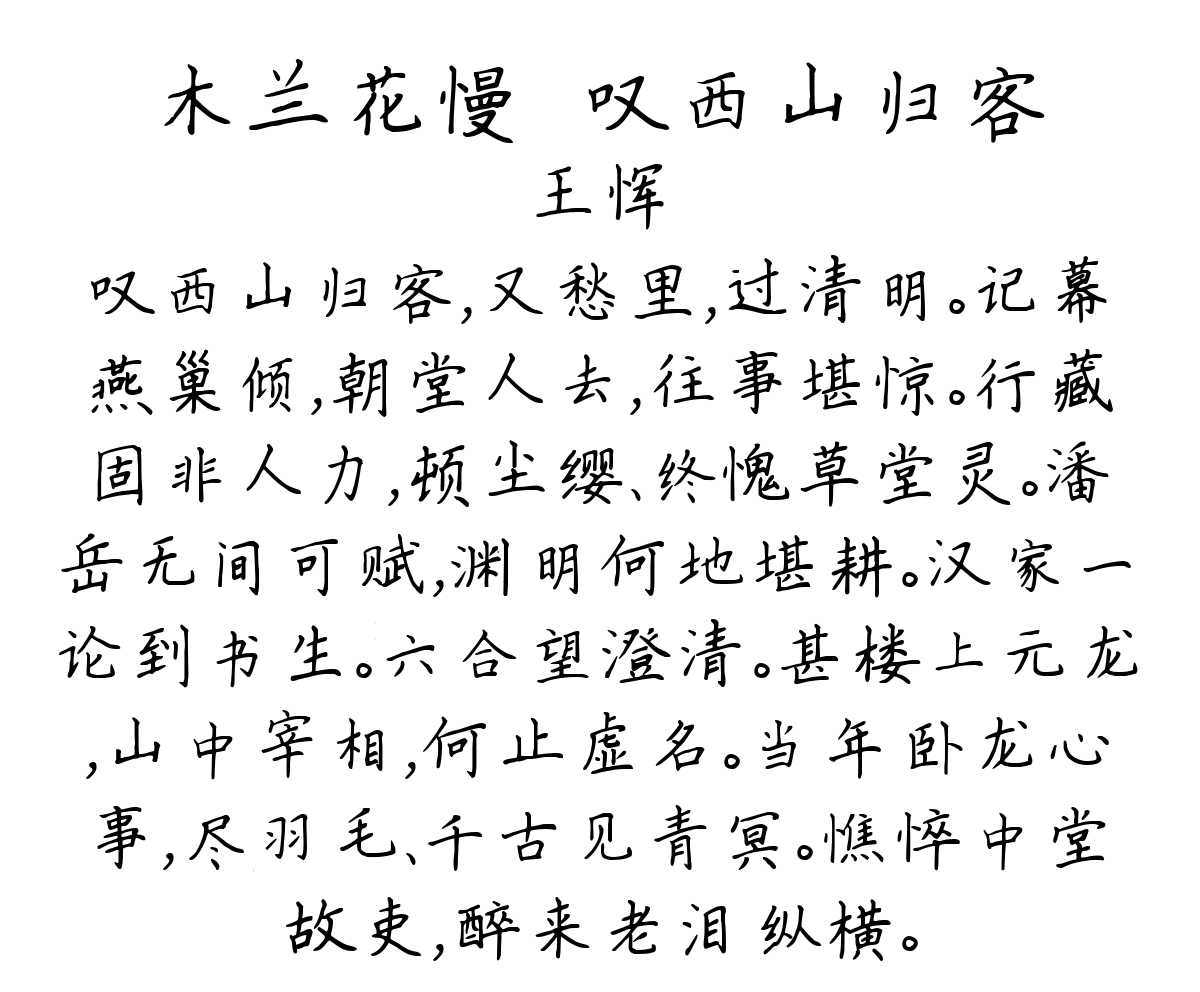 木兰花慢 叹西山归客
王恽
叹西山归客,又愁里,过清明。记幕
燕巢倾,朝堂人去,往事堪惊。行藏
固非人力,顿尘缨、终愧草堂灵。潘
岳无间可赋,渊明何地堪耕。汉家一
论到书生。六合望澄清。甚楼上元龙
,山中宰相,何止虚名。当年卧龙心
事,尽羽毛、千古见青冥。憔悴中堂
故吏,醉来老泪纵横。